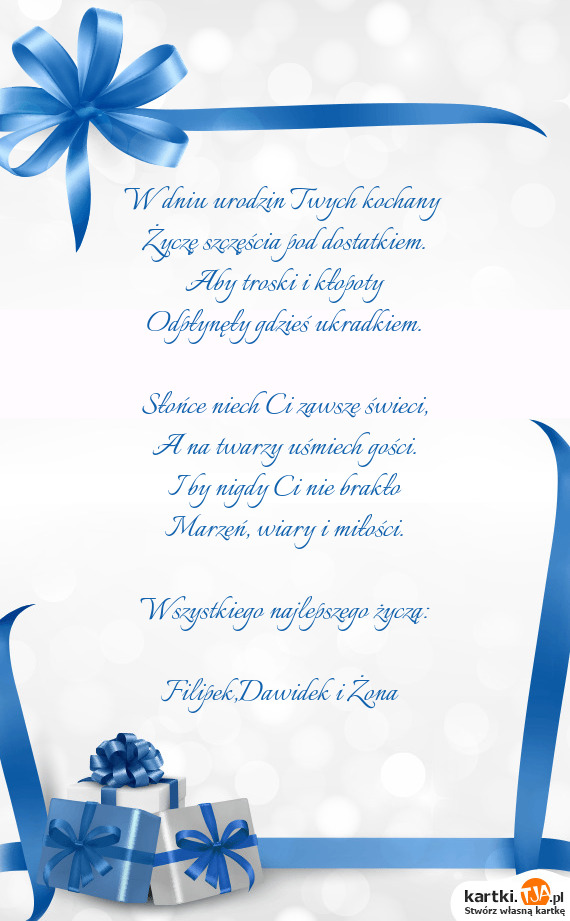 W dniu urodzin Twych kochany
Życzę szczęścia pod dostatkiem.
Aby troski i kłopoty
Odpłynęły gdzieś ukradkiem.
Słońce niech Ci zawsze świeci,
A na twarzy uśmiech gości.
I by nigdy Ci nie brakło
Marzeń, wiary i miłości.
Wszystkiego najlepszego życzą:
Filipek,Dawidek i Żona
kartki.TJA.pl
Stwórz własną kartkę